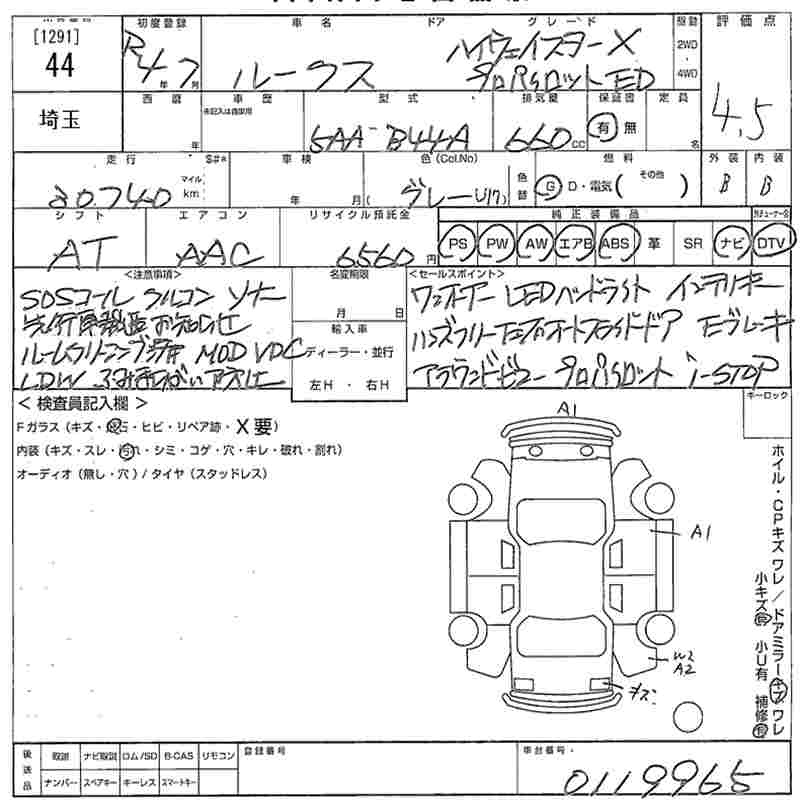 [1291]
44
埼玉
初度登録
R4年7月
車名
ドア
グレード
ルークス
ハイウェイスターX
プロパイロットED
駆動
2WD
・
4WD
評価点
4.5
西暦
年
車歴
未記入は自家用
型式
5AA-B44A
排気量
660cc
保証書
有 無
定員
名
走行
S#*
20740
マイル
km
車検
年 月(
色(Col.No)
グレー
色替
燃料
G・D・電気( その他 )
外装
B
内装
B
シフト
AT
エアコン
AAC
リサイクル預託金
6560円
純正装備品
PS PW AW エアB ABS 革 SR ナビ DTV
<注意事項>
SOSコール クルコン ソナー
ルームクリーニング済 MOD VDC
LDW ふみまちがい アシスト
名変期限
月 日
輸入車
ディーラー・並行
左H ・ 右H
<セールスポイント>
ワンオーナー LEDヘッドライト インテリキー
ハンズフリー オートスライドドア Eブレーキ
アラウンドビュー プロパイロット i-STOP
キーロック
< 検査員記入欄 >
Fガラス(キズ・飛石・ヒビ・リペア跡・X要)
内装(キズ・スレ・汚れ・シミ・コゲ・穴・キレ・破れ・割れ)
オーディオ(無し・穴)/タイヤ(スタッドレス)
A1
A1
W2
A2
キズ
ホイル・CPキズワレ/ドアミラーキズワレ
小キズ有 小U有 補修有
後送品
取説 ナビ取説 ロム/SD B-CAS リモコン
ナンバー スペアキー キーレス スマートキー
登録番号
車台番号・
0119965